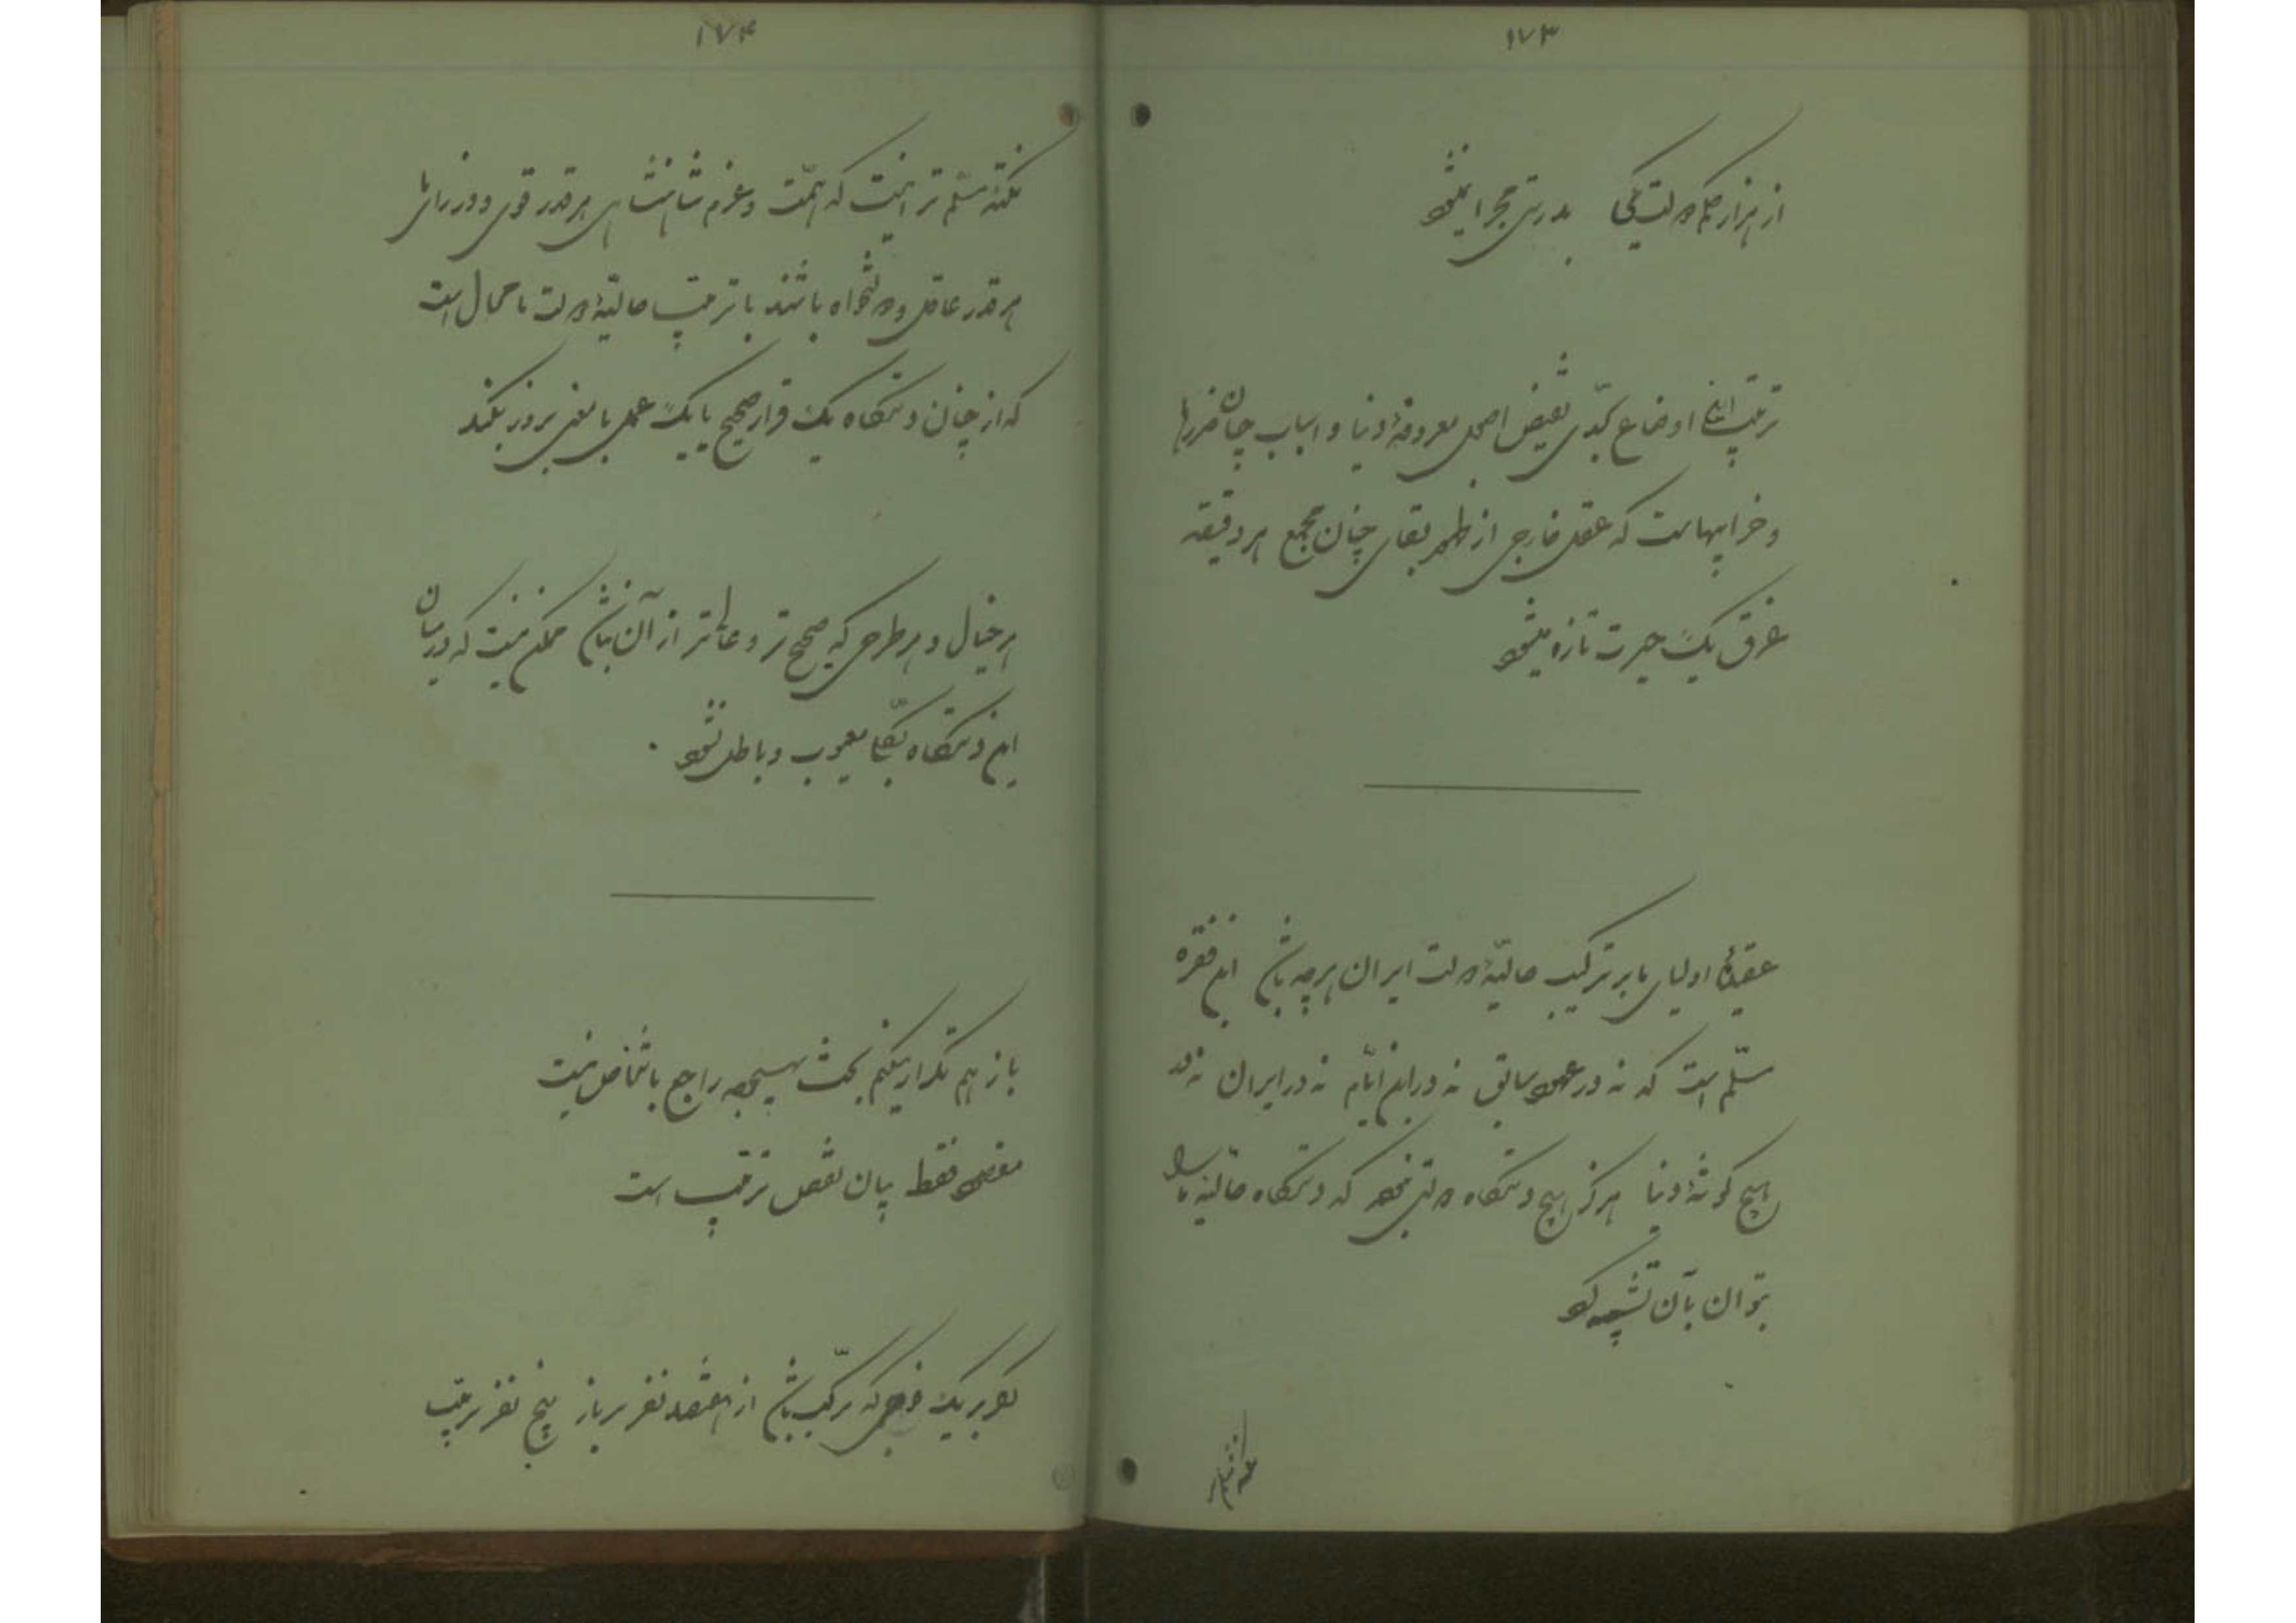 ۱۷۳
از هزار حکم دولت یکی بدرستی مجرا نمیشود
ترتیب این اوضاع بکلی نقیض اصول معروفهٔ دنیا و اسباب چنان ضررها
و خرابیهاست که عقل خارجی از طور بقای چنان مجمع هر دقیقه
غرق یک حیرت تازه میشود
عقیدهٔ اولیای ما بر ترکیب حالیهٔ دولت ایران هرچه باشد این فقره
مسلّم است که نه در عهود سابق نه در این ایّام نه در ایران نه در
هیچ گوشهٔ دنیا هرگز هیچ دستگاه دولتی نبوده که دستگاه حالیهٔ ما را
بتوان بآن تشبیه کرد
۱۷۴
نکتهٔ مسلّم تر اینست که همّت و عزم شاهنشاهی هر قدر قوی و وزرای ما
هر قدر عاقل و دولتخواه باشند با ترتیب حالیهٔ دولت ما محال است
که از چنان دستگاه یک قرار صحیح یا یک عمل با معنی بروز بکند
هر خیال و هر طرحی که صحیح تر و عالی تر از آن نباشد ممکن نیست که در میان
این دستگاه بکلّی معیوب و باطل نشود
باز هم تکرار میکنم بحث بهیچوجه راجع باشخاص نیست
مقصود فقط بیان نقص ترتیب است
در یک فوجی که مرکّب باشد از هفتصد نفر سرباز پنج نفر بر ترتیب